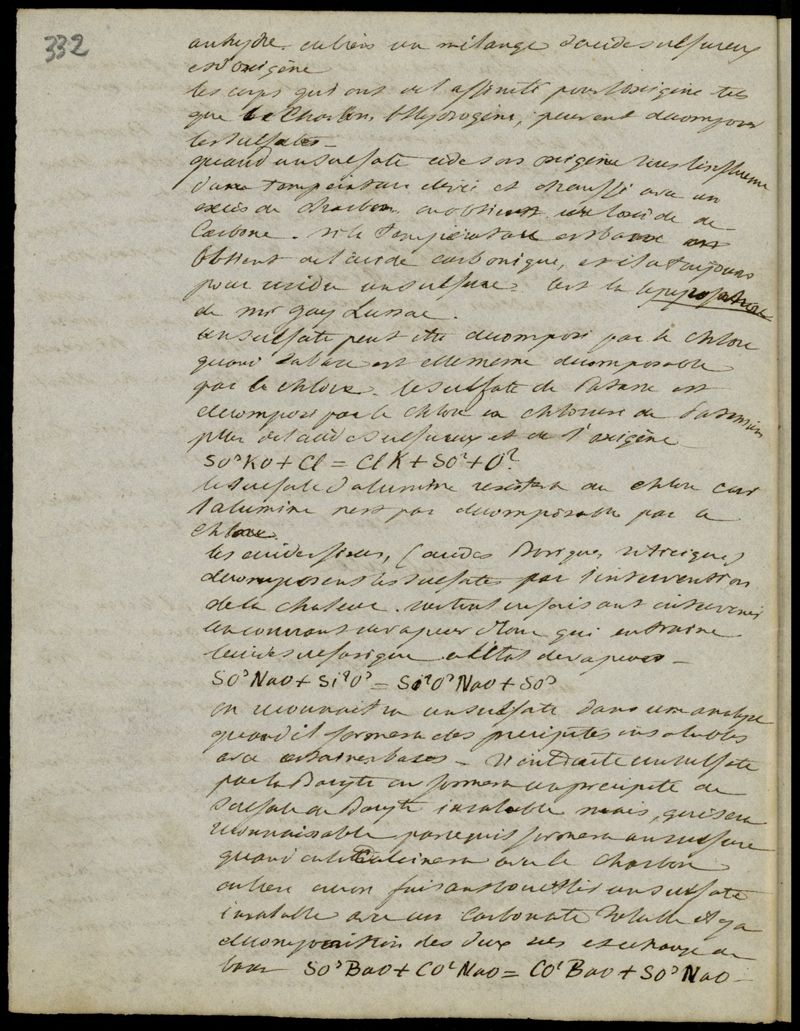 332
anhydre. ou bien un mélange d'acide sulfureux
et d'oxigène
les corps qui ont de l'affinité pour l'oxigène tels
que le Charbon, l'hydrogène, peuvent décomposer
les sulfates _
quand un sulfate cède son oxigène sous l'influence
d'une température élevée et chauffé avec un
excès de charbon on obtient un loxide de
Carbone. si la température est basse on
Obtient de l'acide carbonique, et il a toujours
pour residu un sulfure. c'est la
de mr gay Lussac.
un sulfate peut être décomposé par le chlore
quand sa base est elle même décomposable
par le chlore. le sulfate de Potasse est
décomposé par le chlore en chlorure de Potassium
plus de l'acide sulfureux et de l'oxigène
SO³KO + Cl = ClK + SO² + O².
le sulfate d'alumine résistera au chlore car
l'alumine n'est pas décomposable par le
chlore.
les acides fixes, (acides Boriques, silicique)
décomposent les sulfates par l'intervention
de la chaleur. surtout en faisant intervenir
un courant de vapeur d'eau qui entraine
l'acide sulfurique à l'état de vapeur _
SO³NaO + Si²O³ = Si²O³NaO + SO³
on reconnaitra un sulfate dans une analyse
quand il formera des précipités insolubles
avec certaines bases _ si on traite un sulfate
par la Baryte on formera un précipité de
Sulfate de Baryte insoluble mais, qui sera
reconnaissable parcequ'il formera un sulfure
quand on le Calcinera avec le charbon
ou bien encore en faisant bouillir un sulfate
insoluble avec un Carbonate soluble il y a
décomposition des deux sels et echange de
base SO³BaO + CO²NaO = CO²BaO + SO³NaO _